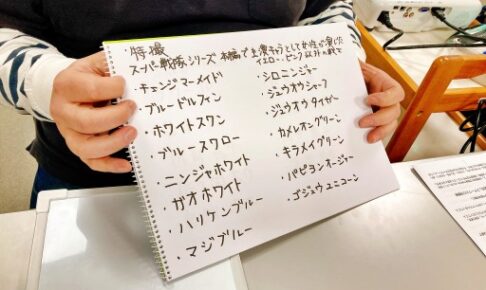 ・特撮
スーパー戦隊シリーズ 本編で主要キャラとして女性が演じた
イエロー、ピンク以外の戦士
・チェンジマーメイド
・ブルードルフィン
・ホワイトスワン
・ブルースワロー
・ニンジャホワイト
・ガオホワイト
・ハリケンブルー
・マジブルー
・シロニンジャー
・ジュウオウシャーク
・ジュウオウタイガー
・カメレオングリーン
・キラメイグリーン
・パピヨンオージャー
・ゴジュウユニコーン